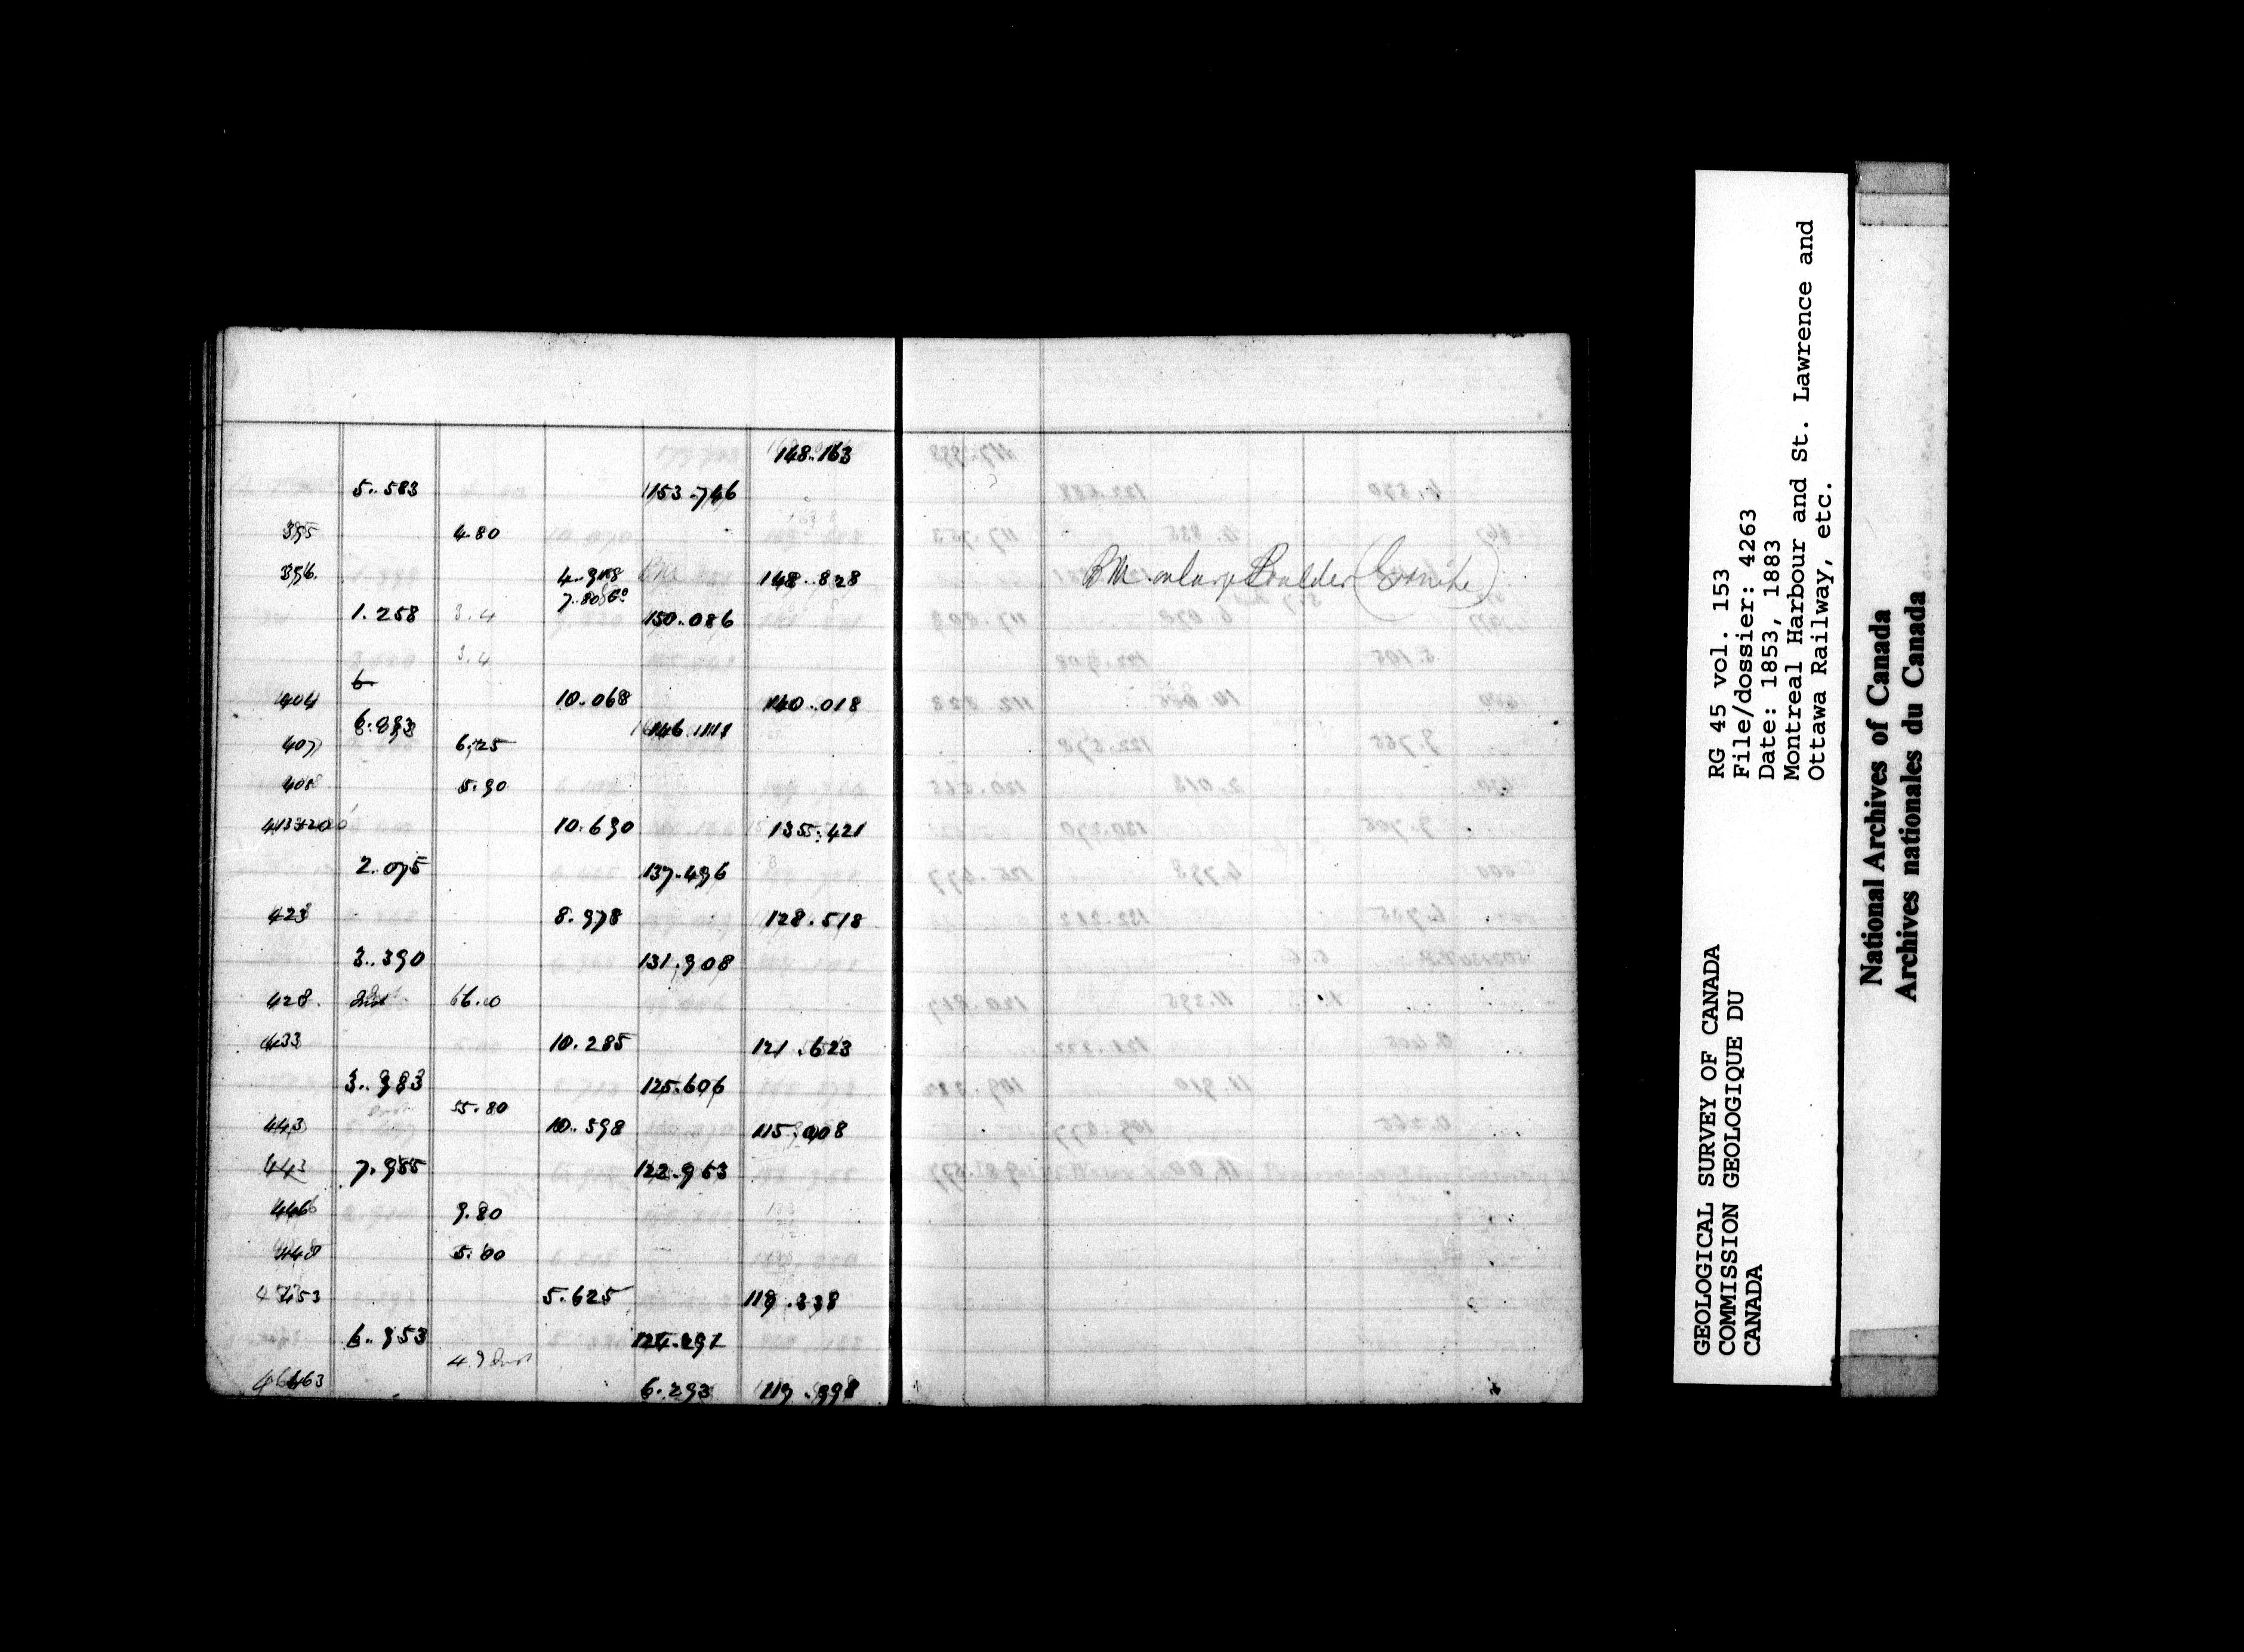 148.163
5.583 153.746
395 4.80
396. 4.918 148.828
7.80
1.258 3.4 150.086
3.4
6
404 10.068 140.018
6.093 146.111
407 6.25
408 5.90
413+20 10.690 135.421
2.075 137.496
423 8.978 128.518
3.390 131.908
428.
433 10.285 121.623
3.983 125.606
5.80
443 10.598 115.008
443 7.955 122.963
446 9.80
448 5.60
453 5.625 117.338
6.953 124.291
4.9
463 6.293 117.998
BM on large Boulder (Granite)
GEOLOGICAL SURVEY OF CANADA
COMMISSION GEOLOGIQUE DU
CANADA
RG 45 vol. 153
File/dossier: 4263
Date: 1853, 1883
Montreal Harbour and St. Lawrence and
Ottawa Railway, etc.
National Archives of Canada
Archives nationales du Canada